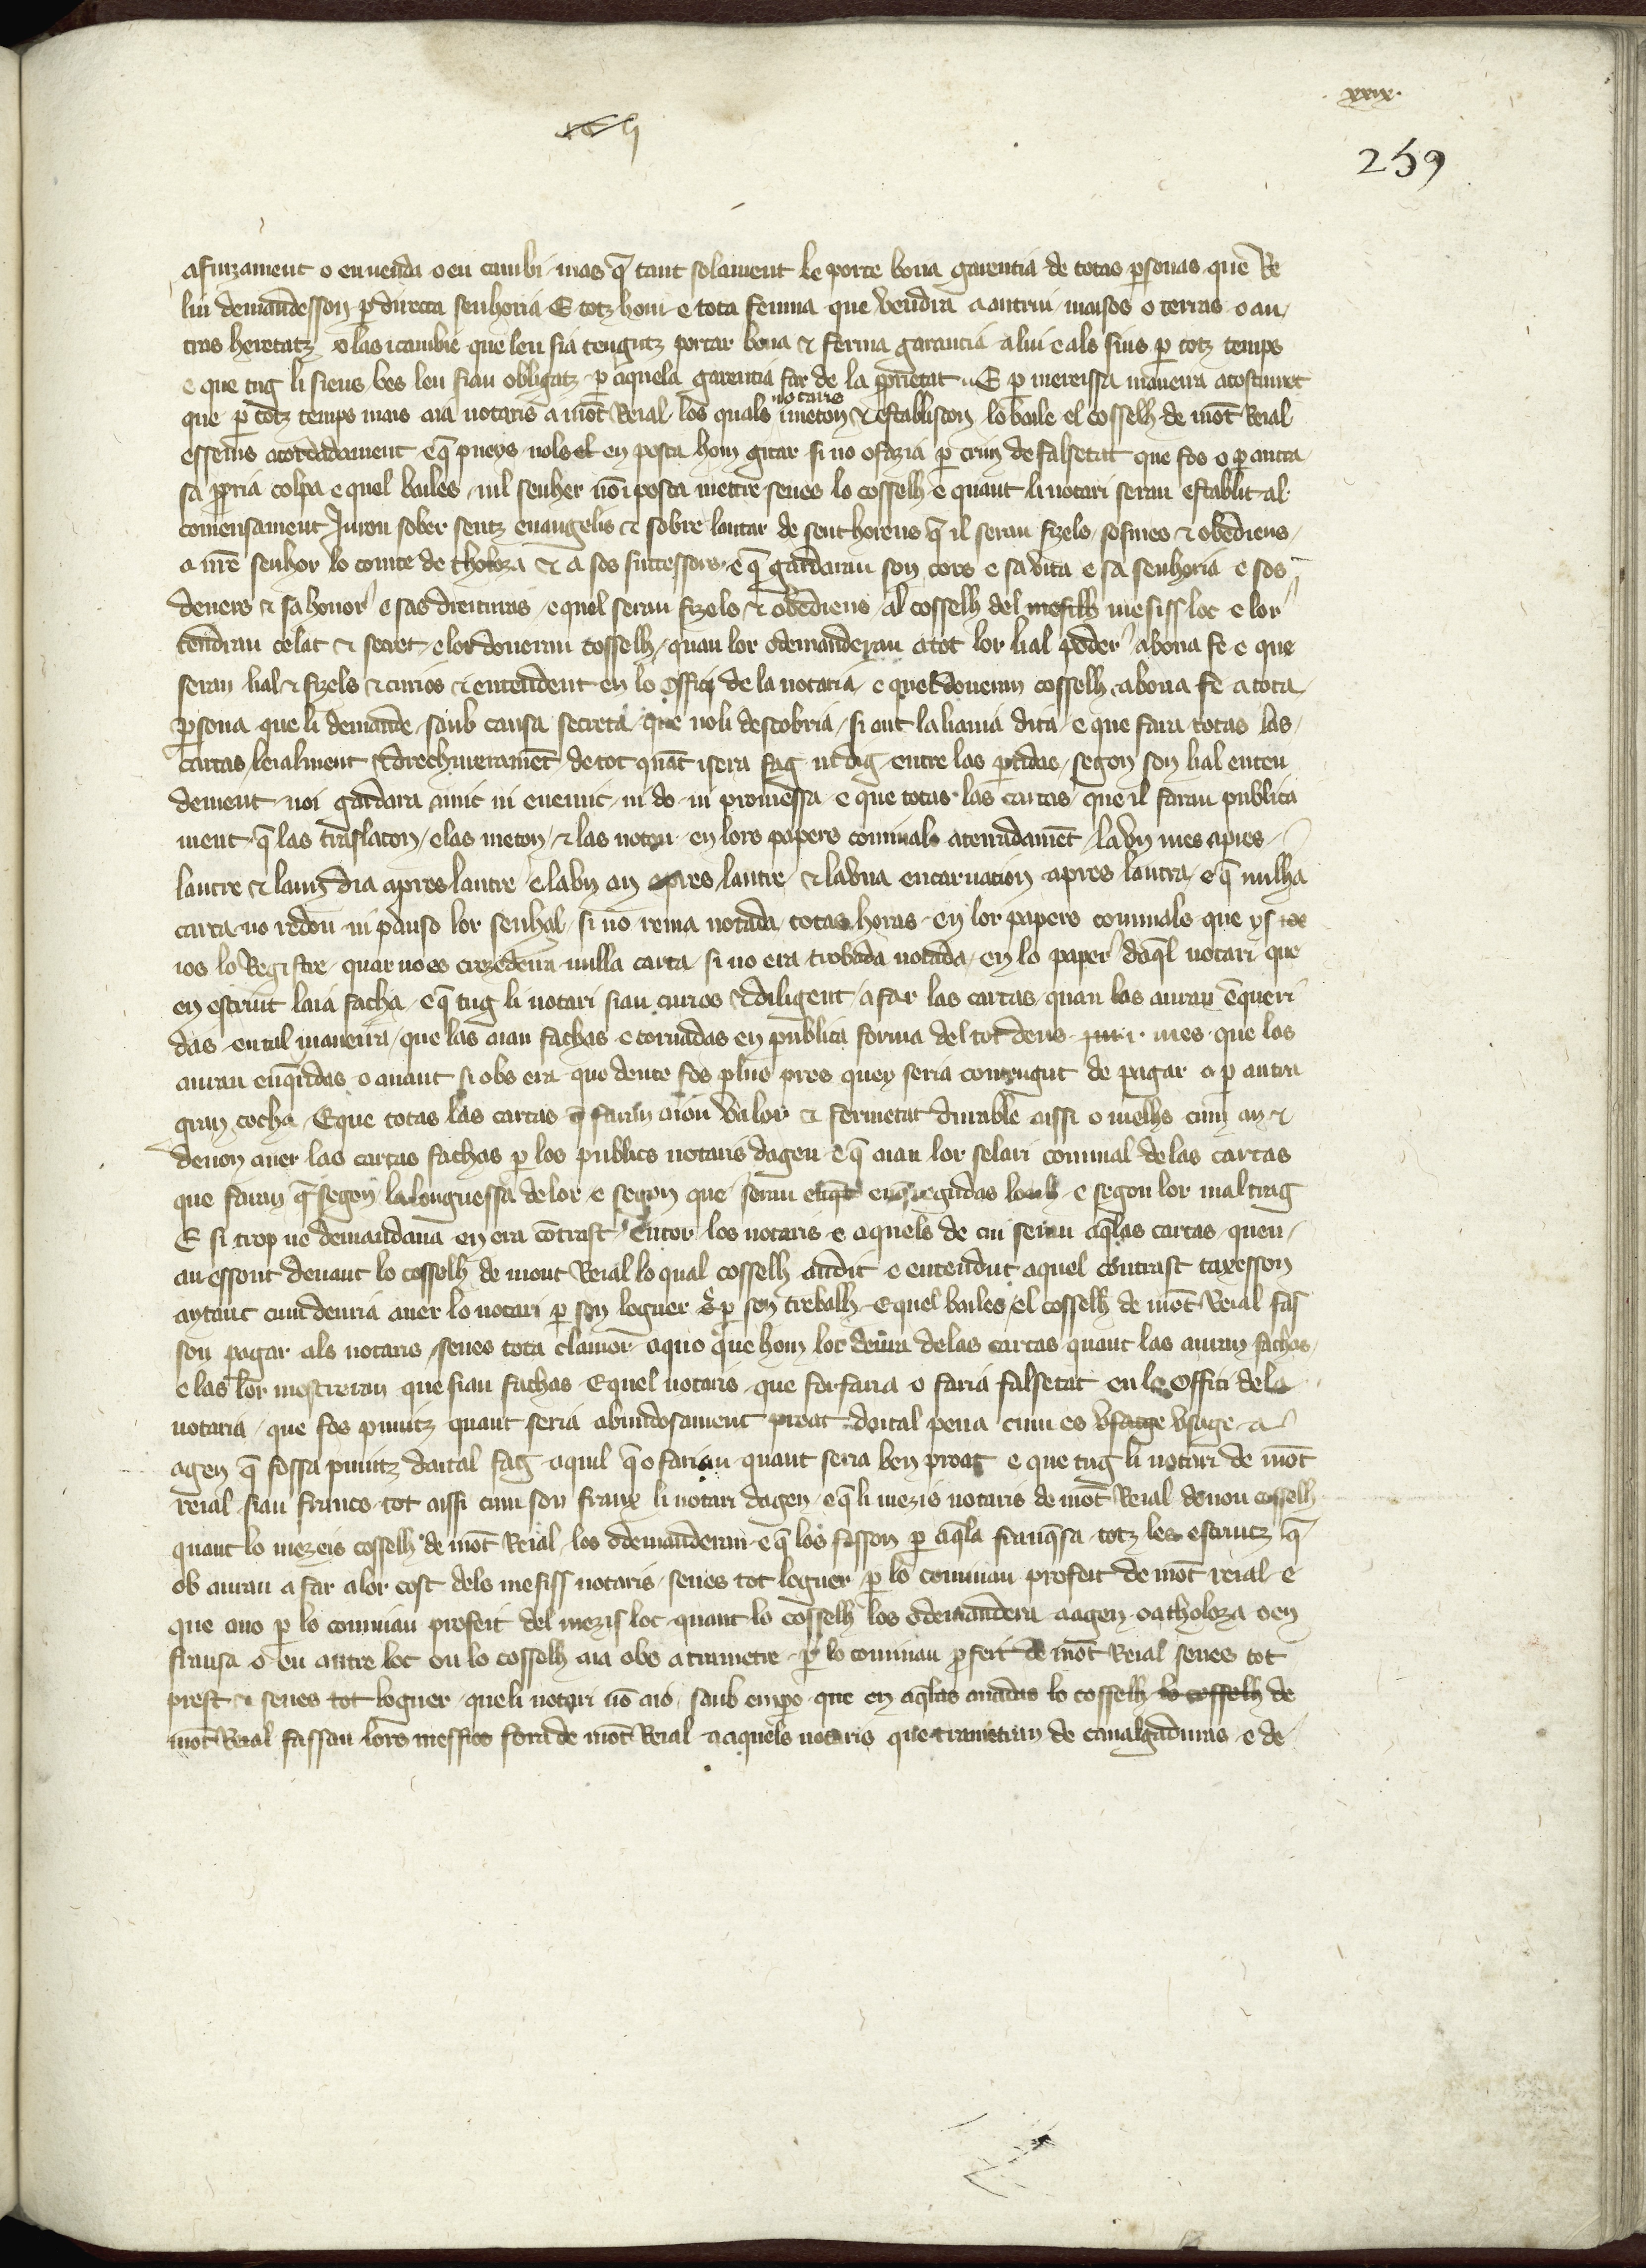 xxix
259
afinzament o en venda o en cambi mas q̄ tant solament le porte bona garentia de totas p̱sonas que Re
lui demandesson p̱ directa senhoria E totz hom e tota femna que vendra a autrui maisos o terras o au
tras heretatz o las icambie que len sia tengutz portar bona & ferma garantia a lui e als sius p̱ totz temps
e que tug li sieus bes len sian obligatz p̱ aquela garentia far de la p̱prietat E p̱ meteissa maneira acostumet
que p̱ totz temps mais aia notaris a mōt Reial los quals notaris meton & establiscon lo baile el cosselh de mōt Reial
essems acordadament e q̄ pueys nols en posca hom gitar si no o fazia p̱ crim de falsetat que fos o p̱ autra
sa p̱pria colpa e quel bailes nil senher no i posca mettre senes lo cosselh e quant li notari seran establit al
comensament Juron sober sentz euangelis & sobre lautar de sent horens q̄ il seran fizels sosmes & obediens
a nr̄e senhor lo comte de tholoza & a sos successors e q̄ gardaran son cors e sa vita e sa senhoria e sos
devers & sa honor e sas dreituras e quel seran fizels & obediens al cosselh del mesiss loc e lor
tendran celat & secret e lor doneran cosselh quan lor o demanderan a tot lor lial poder a bona fe e que
seran lial & fizels & curios & entendent en lo offici de la notaria e quel doneran cosselh a bona fe a tota
p̱sona que li demande saub causa secreta que noli descobria si ont la li auia dita e que fara totas las
cartas leialment & drechurerament de tot quāt i sera fag ni dig entre las p̱tidas segon son lial enten
dement noi gardara amic ni enemic ni do ni promessa e que totas las cartas que il faran publica
ment q̄ las traslaton e las meton & las noton en lors papers cominals atenudamēt la vn mes apres
lautre & laun dia apres lautre e la vn an apres lautre & la vna encarnation apres lautra e q̄ nulha
carta no redon ni pauso lor senhal si no rema notada totas horas en lor papers cominals que ys
ios lo Registre quar no es crezedeira nulla carta si no era trobada notada en lo paper daq̄l notari que
en escriut laia facha e q̄ tug li notari sian curios & diligent a far las cartas quan las auran ēqueri
das en tal maneira que las aian fachas e tornadas en publica forma del tot dens i mes que las
auran enq̄ridas o auant si obs era que deute fos plus pres quey seria contengut de pagar o p̱ autra
gran cocha E que totas las cartas q̄ faran aion valor & fermetat durable aissi o melhs cum an &
deuon auer las cartas fachas p̱ los publics notaris dagen e q̄ aian lor selari cominal de las cartas
que faran q̄ segon la longuessa de lor e segon que seran enq̄regudas e segon lor maltrag
E si trop ne demandaua en era cōtrast Entor los notaris e aquels de cui seran aq̄las cartas quen
anessont deuant lo cosselh de mont Reial lo qual cosselh audit e entendut aquel contrast taxesson
aytant cum deuria auer lo notari p̱ son loguer & p̱ son trebalh E quel bailes el cosselh de mōt Reial fas
son pagar als notaris senes tota clamor aquo que hom loc deura de las cartas quant las auran fachas
e las lor mostreran que sian fachas E quel notaris que forfaria o faria falsetat en lo offici de la
notaria que fos punitz quant seria abundosament proat daital pena cum es vsatge vsage a
agen q̄ fossa punitz daital fag aquil q̄ o farian quant seria ben proat e que tug li notari de mōt
reial sian francs tot aissi cum son franx li notari dagen e q̄ li mezis notaris de mōt Reial donon cosselh
quant lo mezeis cosselh de mōt Reial los o demanderan e q̄ los fasson p̱ aq̄la franq̄sa totz les escriutz q̄
ob auran a far a lor cost dels mesiss notaris senes tot loguer p̱ lo cominau profeit de mōt reial e
que ano p̱ lo cominau profeit del mezis loc quant lo cosselh los o demandera a agen o a tholoza o en
fransa o en autre loc on lo cosselh aia obs a trametre p̱ lo cominau p̱feit de mōt Reial senes tot
prest & senes tot loguer que li notari nō aio saub empo que en aq̄las anadas lo cosselh lo cosselh de
mōt Reial fassan lors messios fora de mōt Reial a aquels notaris que trametran de caualgaduras e de